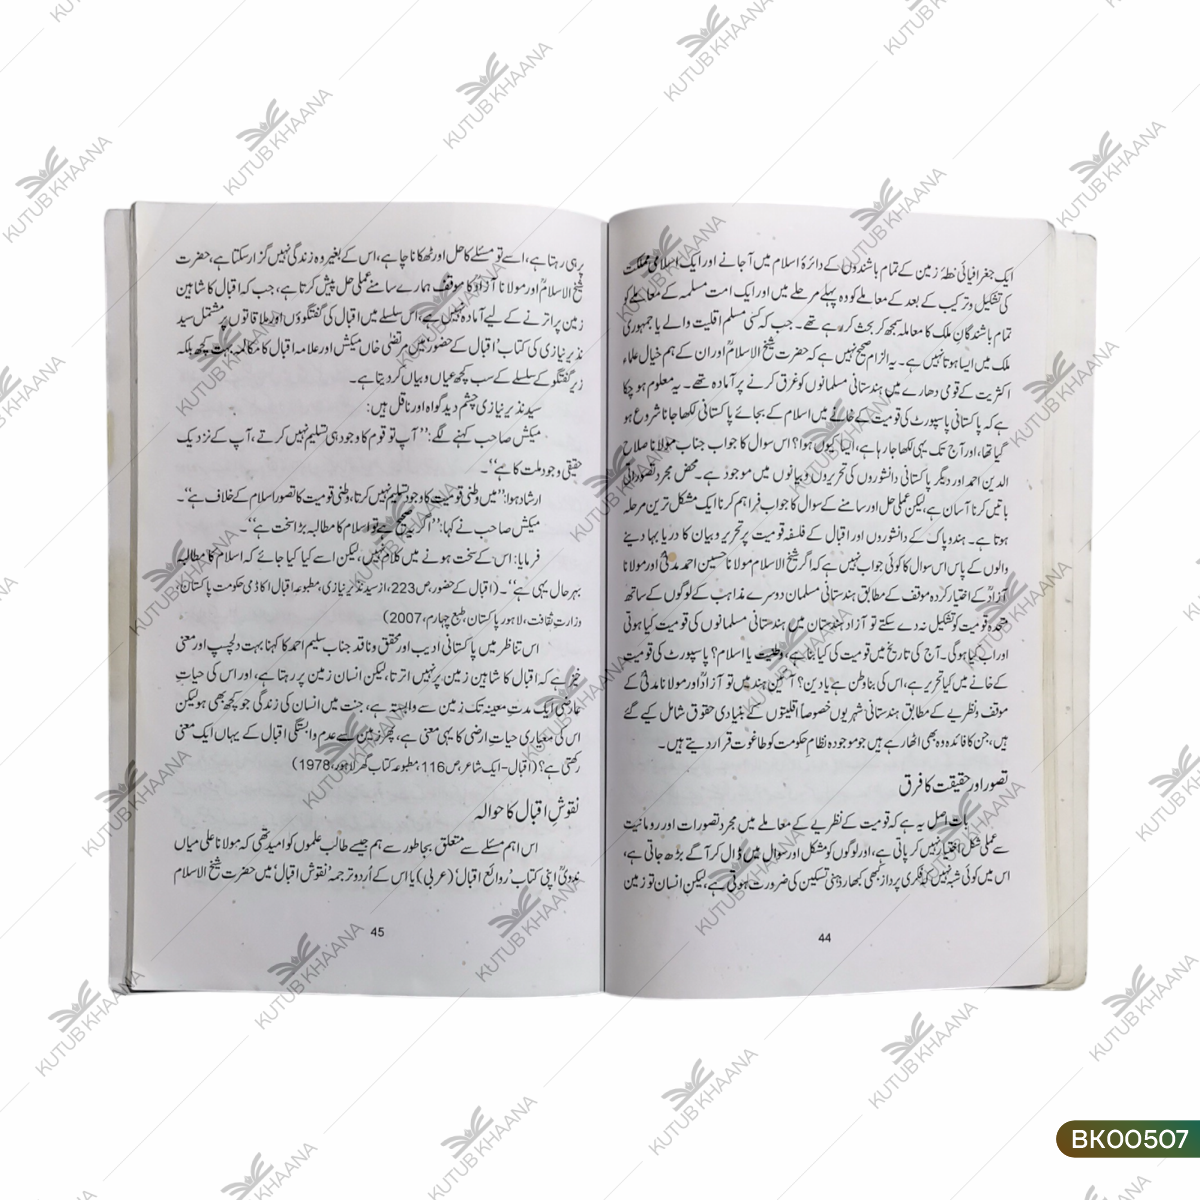 ایک جغرافیائی خطۂ زمین کے تمام باشندوں کے دائرۂ اسلام میں آجانے اور ایک اسلامی مملکت
کی تشکیل وترکیب کے بعد کے معاملے کو وہ پہلے مرحلے میں اور ایک امت مسلمہ کے معاملے کو
تمام باشندگانِ ملک کا معاملہ سمجھ کر بحث کر رہے تھے۔ جب کہ کسی مسلم اقلیت والے یا جمہوری
ملک میں ایسا ہوتا نہیں ہے۔ یہ الزام صحیح نہیں ہے کہ حضرت شیخ الاسلامؒ اور ان کے ہم خیال علماء
اکثریت کے قومی دھارے میں ہندستانی مسلمانوں کو غرق کرنے پر آمادہ تھے۔ یہ معلوم ہو چکا
ہے کہ پاکستانی پاسپورٹ کی قومیت کے خانے میں اسلام کے بجائے پاکستانی لکھا جانا شروع ہو
گیا تھا، اور آج تک یہی لکھا جا رہا ہے، ایسا کیوں ہوا؟ اس سوال کا جواب جناب مولانا صلاح
الدین احمد اور دیگر پاکستانی دانشوروں کی تحریروں و بیانوں میں موجود ہے۔ محض مجرد تصوراتی
باتیں کرنا آسان ہے، لیکن عملی حل اور سامنے کے سوال کا جواب فراہم کرنا ایک مشکل ترین مرحلہ
ہوتا ہے۔ ہندوپاک کے دانشوروں اور اقبال کے فلسفہ قومیت پر تحریر و بیان کا دریا بہا دینے
والوں کے پاس اس سوال کا کوئی جواب نہیں ہے کہ اگر شیخ الاسلام مولانا حسین احمد مدنیؒ اور مولانا
آزادؒ کے اختیار کردہ موقف کے مطابق ہندستانی مسلمان دوسرے مذاہب کے لوگوں کے ساتھ
متحدہ قومیت کو تشکیل نہ دے سکتے تو آزاد ہندستان میں ہندستانی مسلمانوں کی قومیت کیا ہوتی
اور اب کیا ہوگی۔ آج کی تاریخ میں قومیت کی کیا بنا ہے، وطنیت یا اسلام؟ پاسپورٹ کی قومیت
کے خانے میں کیا تحریر ہے، اس کی بنا وطن ہے یا دین؟ آئین ہند میں تو آزادؒ اور مولانا مدنیؒ کے
موقف ونظریے کے مطابق ہندستانی شہریوں خصوصاً اقلیتوں کے بنیادی حقوق شامل کیے گئے
ہیں، جن کا فائدہ وہ بھی اٹھا رہے ہیں جو موجودہ نظام حکومت کو طاغوت قرار دیتے ہیں۔
تصور اور حقیقت کا فرق
بات اصل یہ ہے کہ قومیت کے نظریے کے معاملے میں مجرد تصورات اور رومانیت
سے عملی شکل اختیار نہیں کر پاتی ہے، اور لوگوں کو مشکل اور سوال میں ڈال کر آگے بڑھ جاتی ہے،
اس میں کوئی شبہ نہیں کہ فکری پرداز کبھی کبھار ذہنی تسکین کی ضرورت ہوتی ہے، لیکن انسان تو زمین
44
پر ہی رہتا ہے، اسے تو مسئلے کا حل اور ٹھکانا چاہیے، اس کے بغیر وہ زندگی نہیں گزار سکتا ہے، حضرت
شیخ الاسلامؒ اور مولانا آزادؒ کا موقف ہمارے سامنے عملی حل پیش کرتا ہے، جب کہ اقبال کا شاہین
زمین پر اترنے کے لیے آمادہ نہیں ہے، اس سلسلے میں اقبال کی گفتگوؤں اور ملاقاتوں پر مشتمل سید
نذیر نیازی کی کتاب 'اقبال کے حضور' میں مرتضیٰ خاں میکش اور علامہ اقبال کا مکالمہ بہت کچھ بلکہ
زیر گفتگو کے سلسلے کے سب کچھ عیاں و بیاں کر دیتا ہے۔
سید نذیر نیازی چشم دید گواہ اور ناقل ہیں:
میکش صاحب کہنے لگے: ''آپ تو قوم کا وجود ہی تسلیم نہیں کرتے، آپ کے نزدیک
حقیقی وجود ملت کا ہے''۔
ارشاد ہوا: ''میں وطنی قومیت کا وجود تسلیم نہیں کرتا، وطنی قومیت کا تصور اسلام کے خلاف ہے''۔
میکش صاحب نے کہا: ''اگر یہ صحیح ہے تو اسلام کا مطالبہ بڑا سخت ہے''۔
فرمایا: اس کے سخت ہونے میں کلام نہیں، لیکن اسے کیا کیا جائے کہ اسلام کا مطالبہ
بہرحال یہی ہے''۔ (اقبال کے حضور، ص 223، از سید نذیر نیازی، مطبوعہ اقبال اکاڈمی حکومت پاکستان،
وزارت ثقافت، لاہور پاکستان، طبع چہارم، 2007)
اس تناظر میں پاکستانی ادیب اور محقق و ناقد جناب سلیم احمد کا کہنا بہت دلچسپ اور معنی
خیز ہے کہ اقبال کا شاہین زمین پر نہیں اترتا، لیکن انسان زمین پر رہتا ہے، اور اس کی حیاتِ
عارضی ایک مدتِ معینہ تک زمین سے وابستہ ہے، جنت میں انسان کی زندگی جو کچھ بھی ہو لیکن
اس کی معیاری حیاتِ ارضی کا یہی معنی ہے، پھر زمین سے عدم وابستگی اقبال کے یہاں ایک معنی
رکھتی ہے؟ (اقبال-ایک شاعر، ص 116، مطبوعہ کتاب گھر لاہور، 1978)
نقوشِ اقبال کا حوالہ
اس اہم مسئلے سے متعلق بجا طور سے ہم جیسے طالب علموں کو امید تھی کہ مولانا علی میاں
ندویؒ اپنی کتاب 'روائع اقبال' (عربی) یا اس کے اُردو ترجمہ 'نقوش اقبال' میں حضرت شیخ الاسلام
45
BK00507